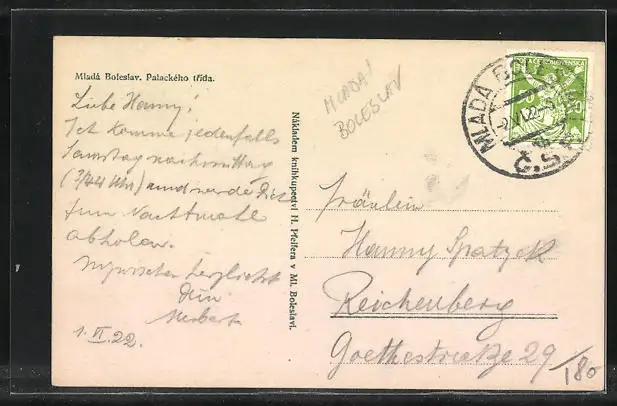 Mladá Boleslav. Palackého třída.
Liebe Hanny!
Ich komme jedenfalls
Samstag nachmittag
(3/44 Uhr) und werde Dich
zum Nachtmahle
abholen.
Inzwischen herzlichst
Dein
Herbert
1. VI. 22.
MLADA!
BOLESLAV
Nákladem knihkupectví H. Pfeifera v Ml. Boleslavi.
MLADÁ BOLE
2.VI.22
Č.S.
Fräulein
Hanny Spatzek
Reichenberg
Goethestraße 29
/180